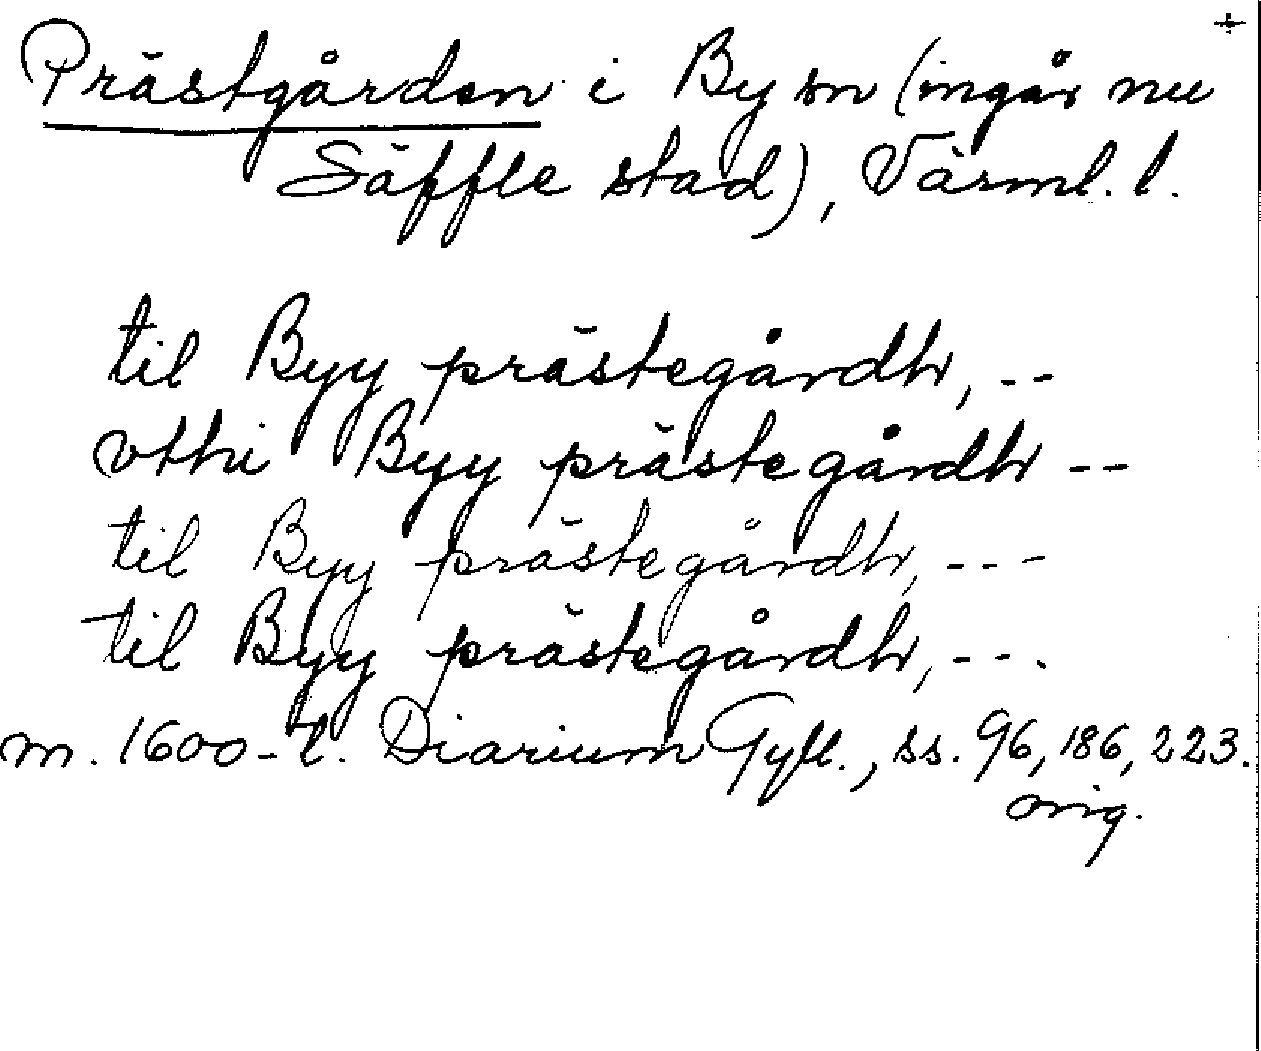 +
Prästgården i By sn (ingår nu
Säffle stad), Värml. l.
til Byy prästegårdh, --
vthi Byy prästegårdh --
til Byy prästegårdh, ---
til Byy prästegårdh, ---
m. 1600-t. Diarium Gyll., ss. 96, 186, 223.
orig.